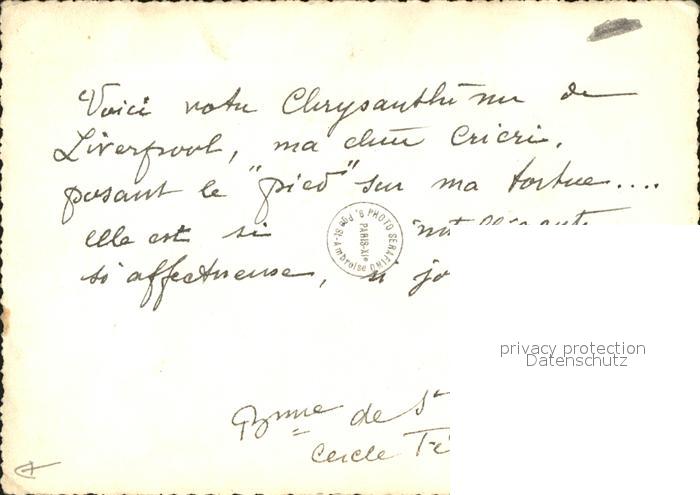 Voici votre Chrysanthème de
Liverpool, ma chère Cricri,
posant le "pied" sur ma tortue....
elle est si
si affectueuse, si jo
PHOTO SERAFINO
9, Pge St-Ambroise
PARIS-XIe
privacy protection
Datenschutz
Bnne de St
Cercle